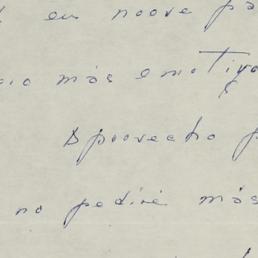 en noove pa
más emotivo
Aprovecho p
no pediré más